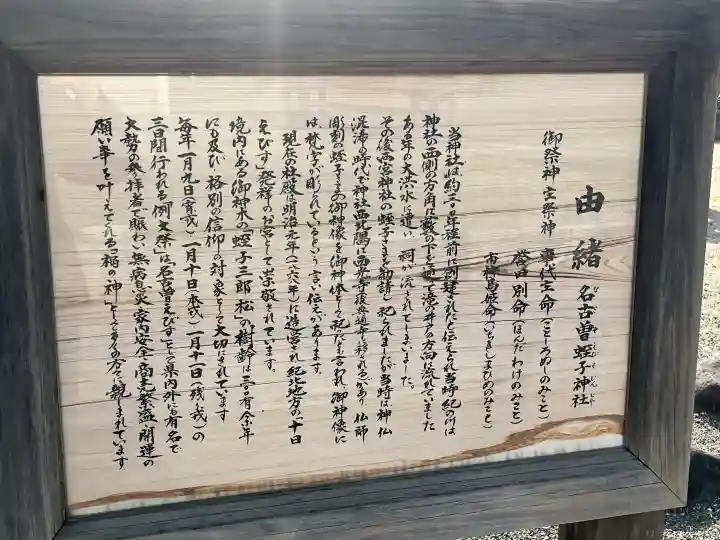 由緒 名古曽蛭子神社
御祭神 主祭神 事代主命（ことしろぬしのみこと）
誉田別命（ほんだわけのみこと）
市杵島姫命（いちきしまひめのみこと）
当神社は、約六百年程前に創建されたと伝えられ当時紀の川は
神社の西側の方角に 下を通って滝の井戸の方向に流れていました
ある年の大洪水に遭い、祠が流されてしまいました。
その後西宮神社の蛭子さまを勧請し祀られましたが当時は神仏
混淆の時代で神社西北隅に西光寺 あり 仏師
彫刻の蛭子さまの御神像を御神体として祀たと言われ、御神像に
は、梵字が彫られているという言い伝えがあります。
現在の社殿は明治元年（一八六八年）に造営され紀北地方の「十日
えびす」発祥のお宮として崇敬されています。
境内にある御神木の「蛭子三郎松」の樹齢は三百有余年
にも及び、格別の信仰の対象として大切にされています
毎年一月九日（宵戎）一月十日（本戎）一月十一日（残り戎）の
三日間行われる「例大祭」は「名古曽えびす」として県内外にも有名で
大勢の参拝者で賑わい無病息災、家内安全、商売繁盛、開運の
願い事を叶えてくれる「福の神」として多くの方々に親しまれています